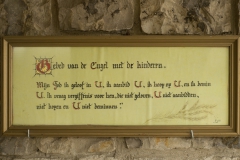 Gebed van de Engel met de kinderen.
Mijn God ik geloof in U, ik aanbid U, ik hoop op U, en ik bemin
U. Ik vraag vergiffenis voor hen, die niet geloven, U niet aanbidden,
niet hopen en U niet beminnen."